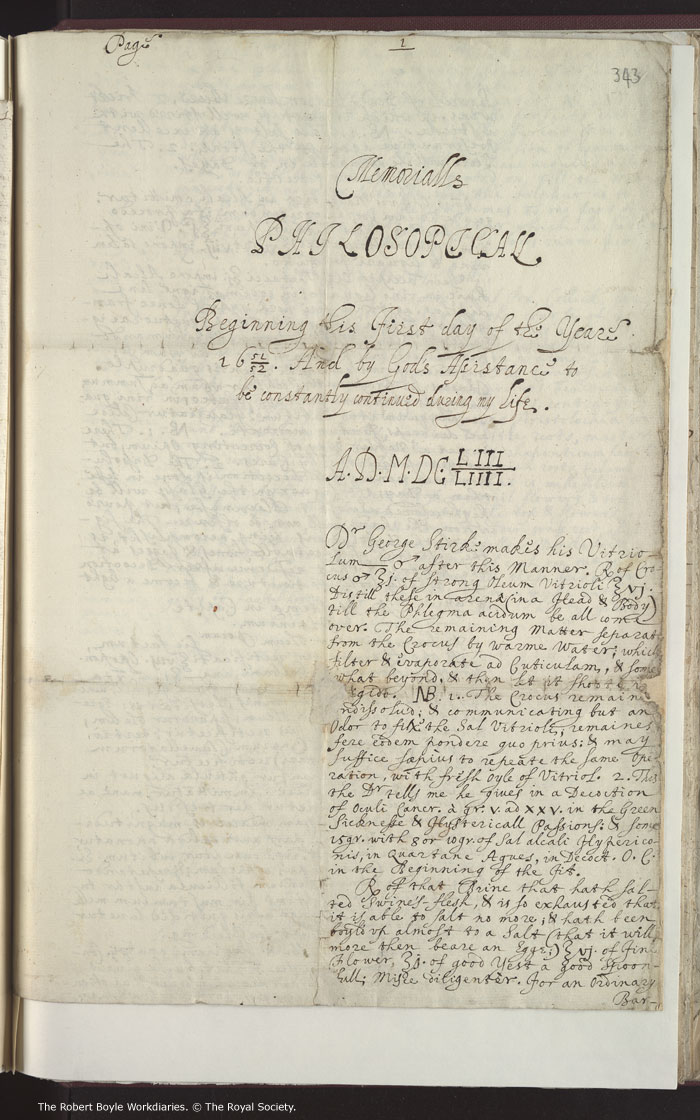 Page
1
343
Memorialls
PHILOSOPHICALL
Beginning this First day of the Yeare
16 51/52. And by Gods Assistance to
be constantly continued during my Life.
A.D.M.DC LIII/LIIII.
Dr George Stirke makes his Vitrio-
lum ♂ after this Manner. ℞ of Cro-
cus ♂ ℥j. of strong Oleum Vitrioli ℥vj.
Distill these in arena (in a Head & Body)
till the Phlegma acidum be all come
over. The remaining Matter separate
from the Crocus by warme Water; which
filter & evaporate ad Cuticulam, & some
what beyond, & then let it shoote in
frigido. NB. 1. The Crocus remaines
redissolub; & communicating but an
Odor to the Sal Vitrioli, remaines
fere eodem pondere quo prius: & may
suffice sæpius to repeate the same Ope-
ration, with fresh Oyle of Vitriol. 2. This
the Dr tells me he gives in a Decoction
of Oculi Cancr. a gr. v. ad xxv. in the Green
Sicknesse & Hystericall Passions: & some
15gr. with 8 or 10gr. of Sal alcali Hyperico-
nis, in Quartane Agues, in Decoct. O. C.
in the Beginning of the Fit.
℞ of that Brine that hath sal-
ted Swines-flesh, & is so exhausted that
it is able to salt no more; & hath been
boyl'd up almost to a Salt (that it will
more then beare an Egge;) ℥vj. of fine
Flower, ℥j. of good Yest a good Spoon-
full; Misce diligenter. For an Ordinary
Bar-
The Robert Boyle Workdiaries. © The Royal Society.